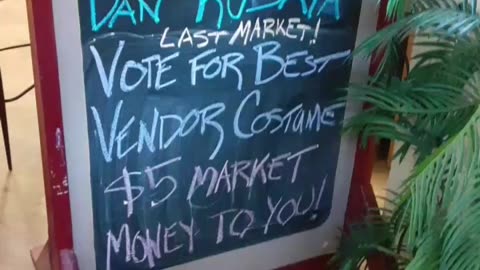 DAN
LAST MARKET!
VOTE FOR BEST
VENDOR COSTUME
$5 MARKET
MONEY TO YOU!